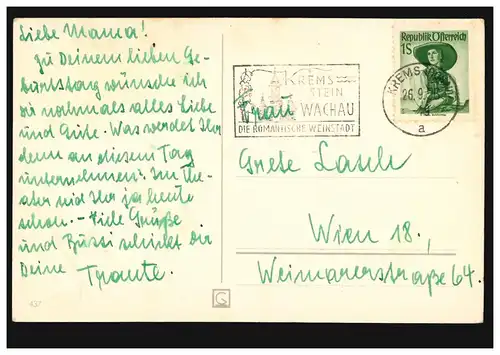 Liebe Mama!
zu Deinem lieben Ge-
burtstag wünsche ich
dir nochmals alles Liebe
und Gute. Was werdet Ihr
denn an diesem Tag
unternehmen? Im The-
ater seid Ihr ja heute
schon. - Viele Grüße
und Bussi schickt Dir
Deine Traute.
437
KREMS
STEIN
WACHAU
DIE ROMANTISCHE WEINSTADT
Frau
KREMS
26.9.
a
Republik Österreich
1S
Grete Lasch
Wien 18.,
Weimarerstraße 64.